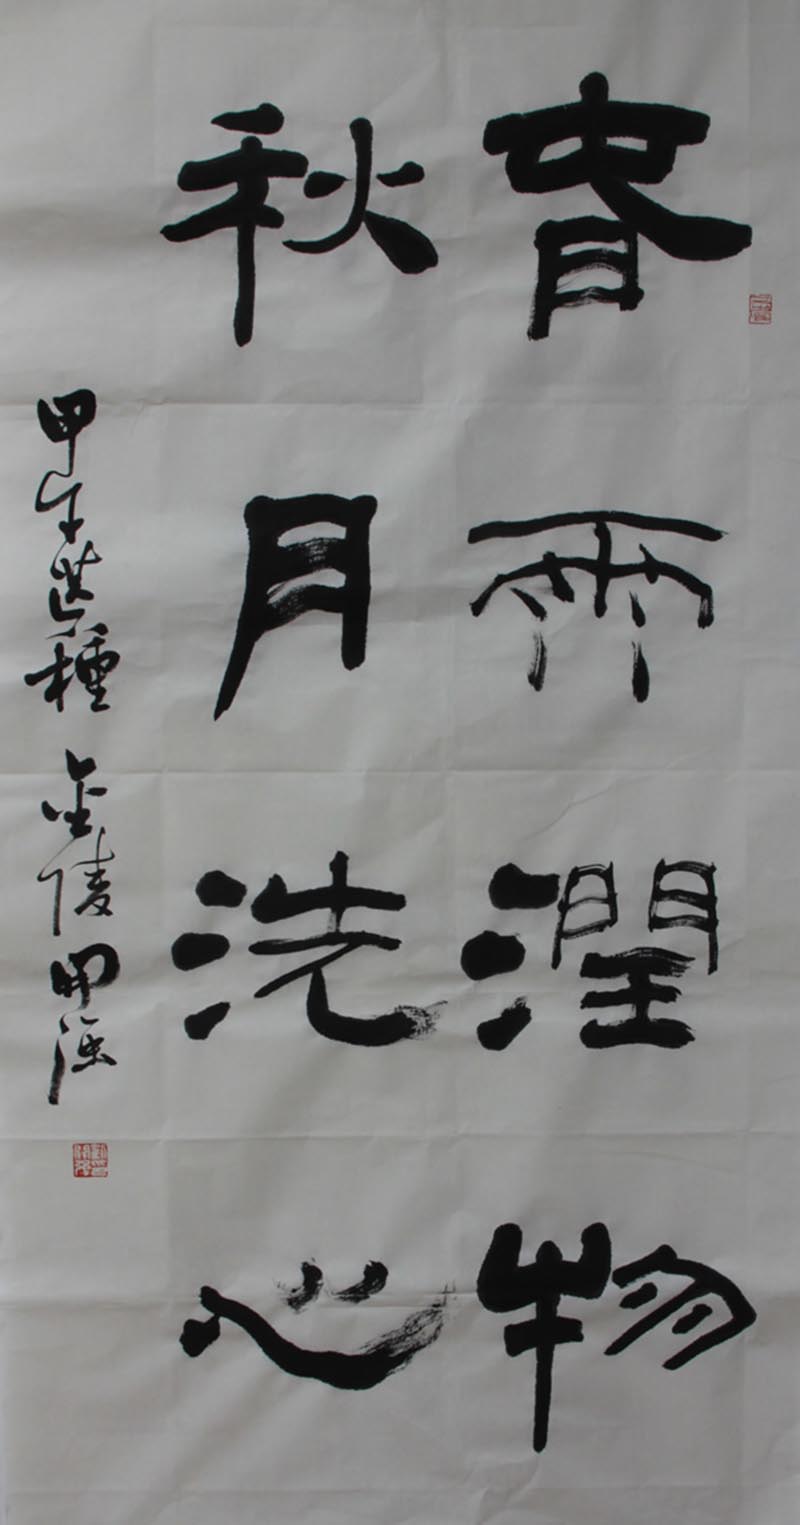 春雨潤物
秋月洗心
甲午芒種 金陵開強